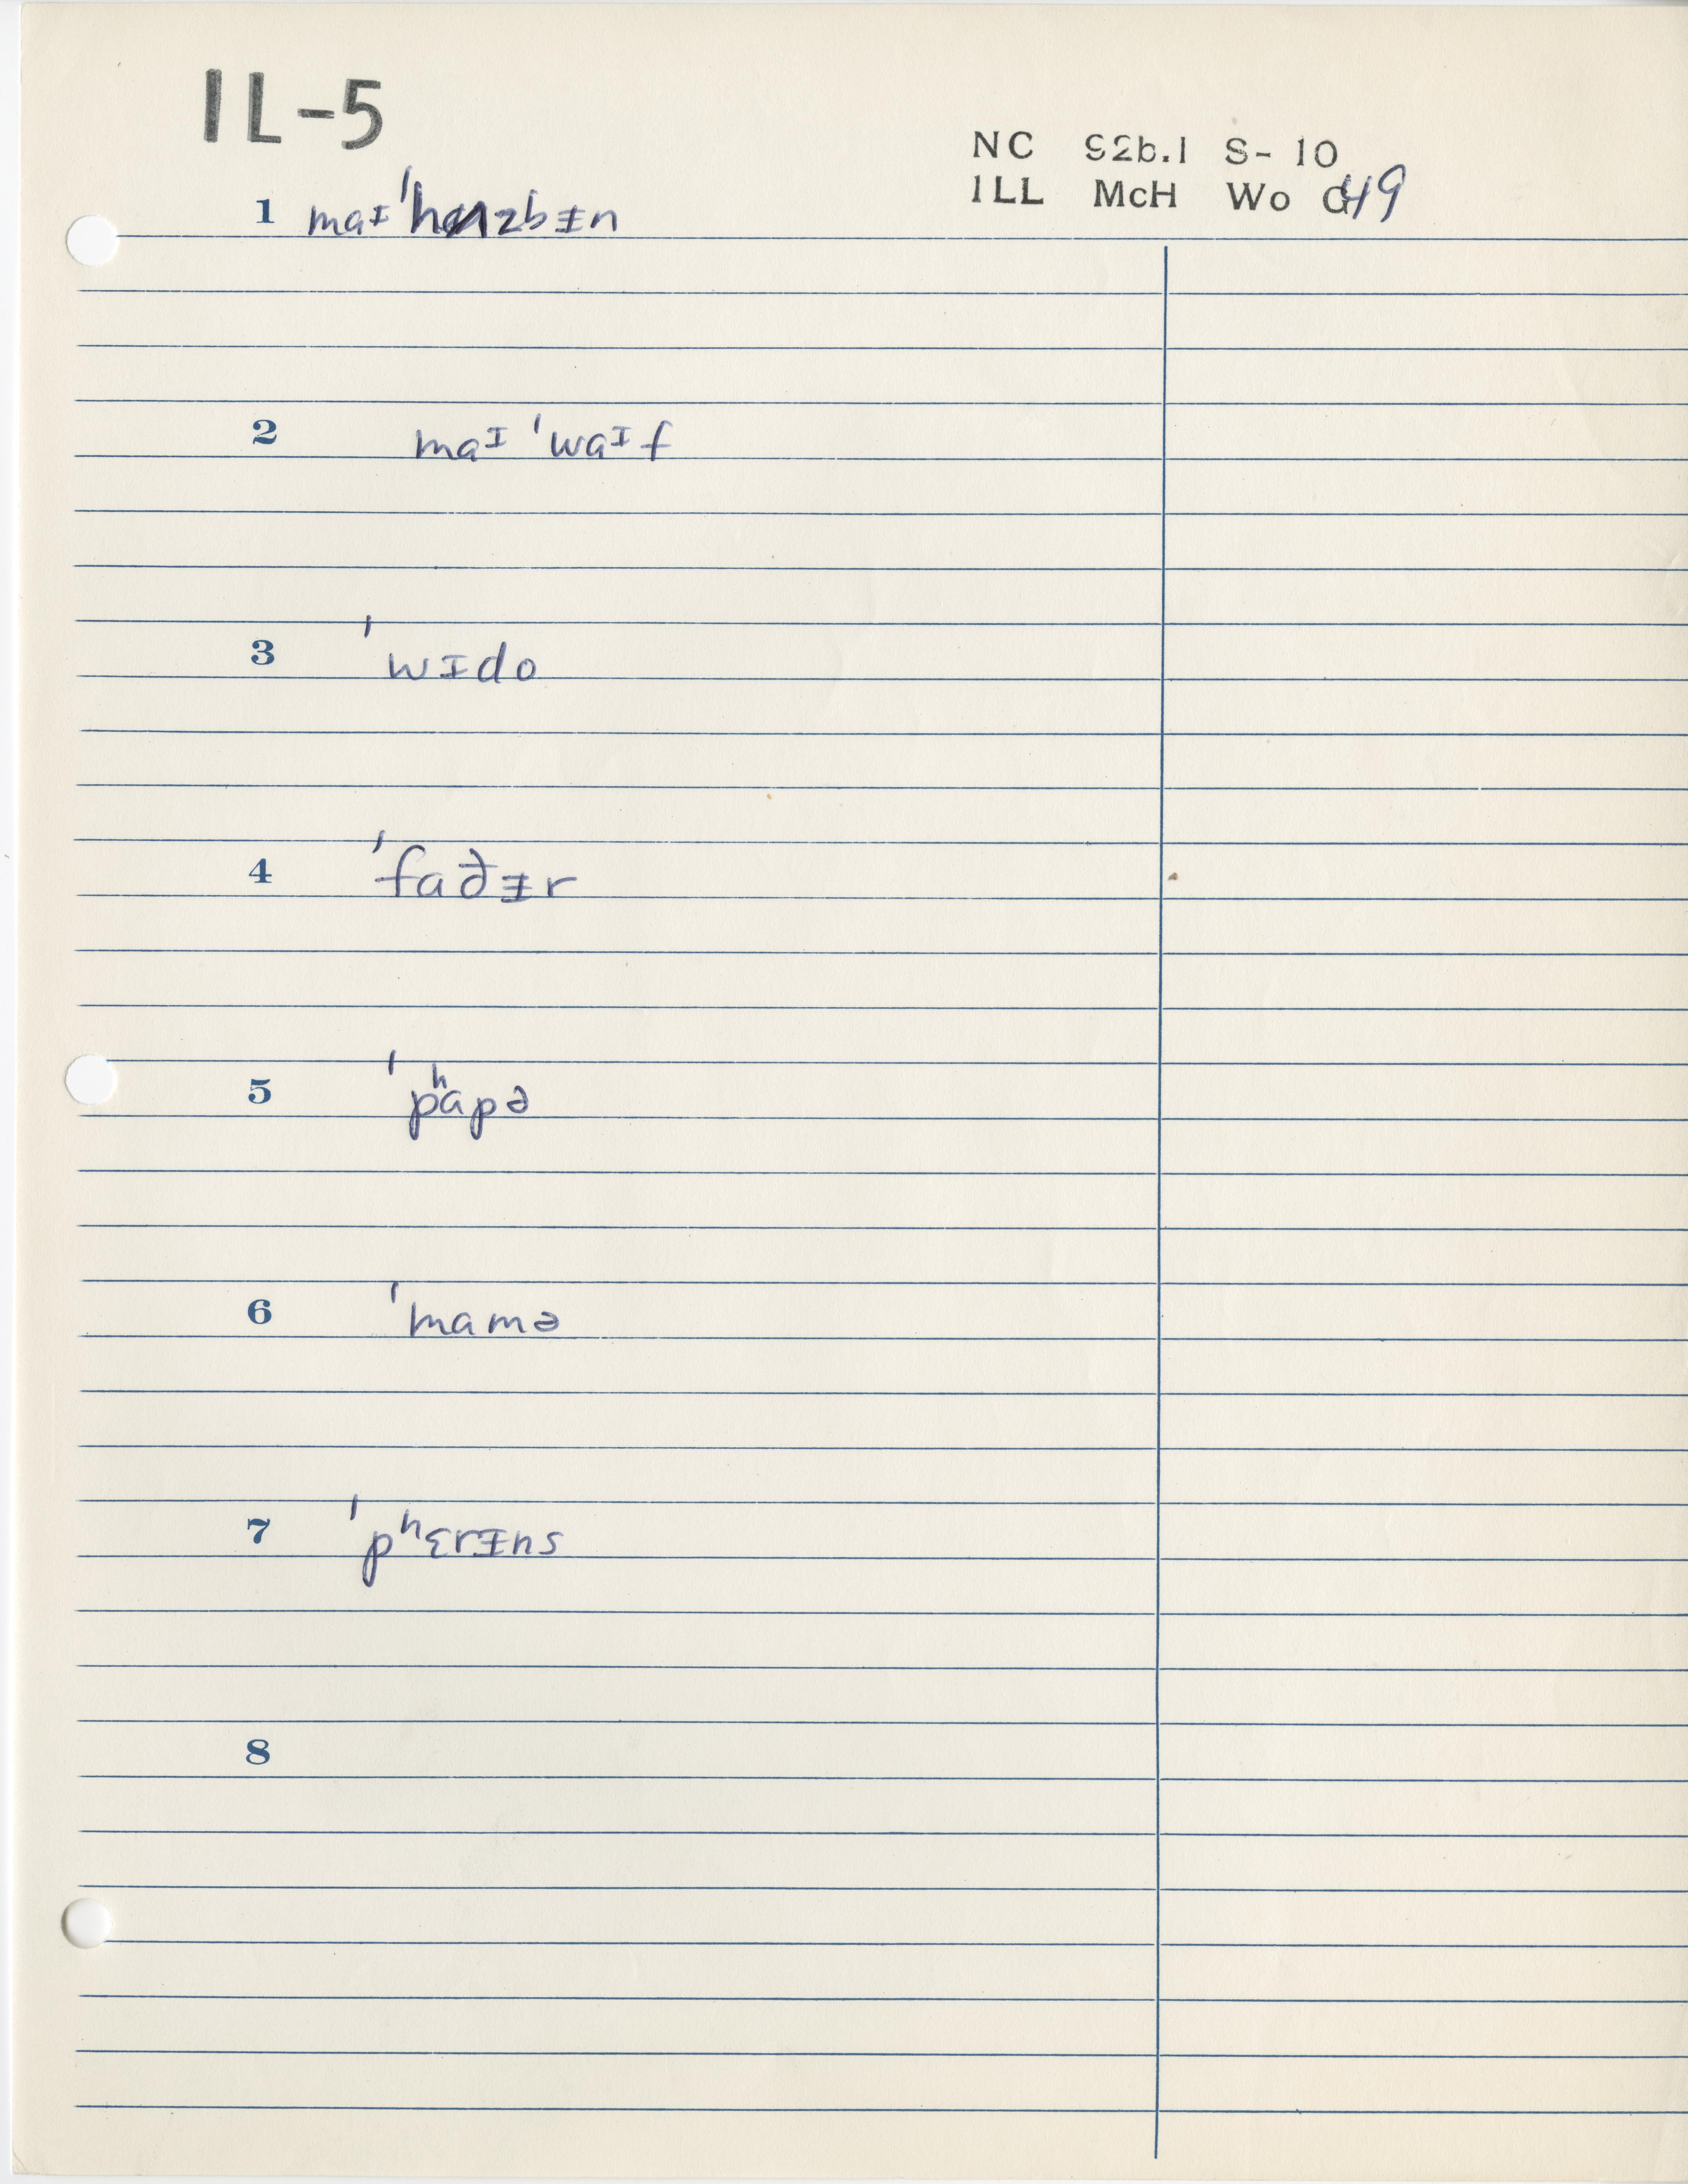 IL-5
NC 92b.1 S- 10
ILL McH Wo G49
1 maɪ ˈhʌzbᵻn
2 maɪ ˈwaɪf
3 ˈwɪdo
4 ˈfaðᵻr
5 ˈpʰapə
6 ˈmamə
7 ˈpʰɛrᵻns
8